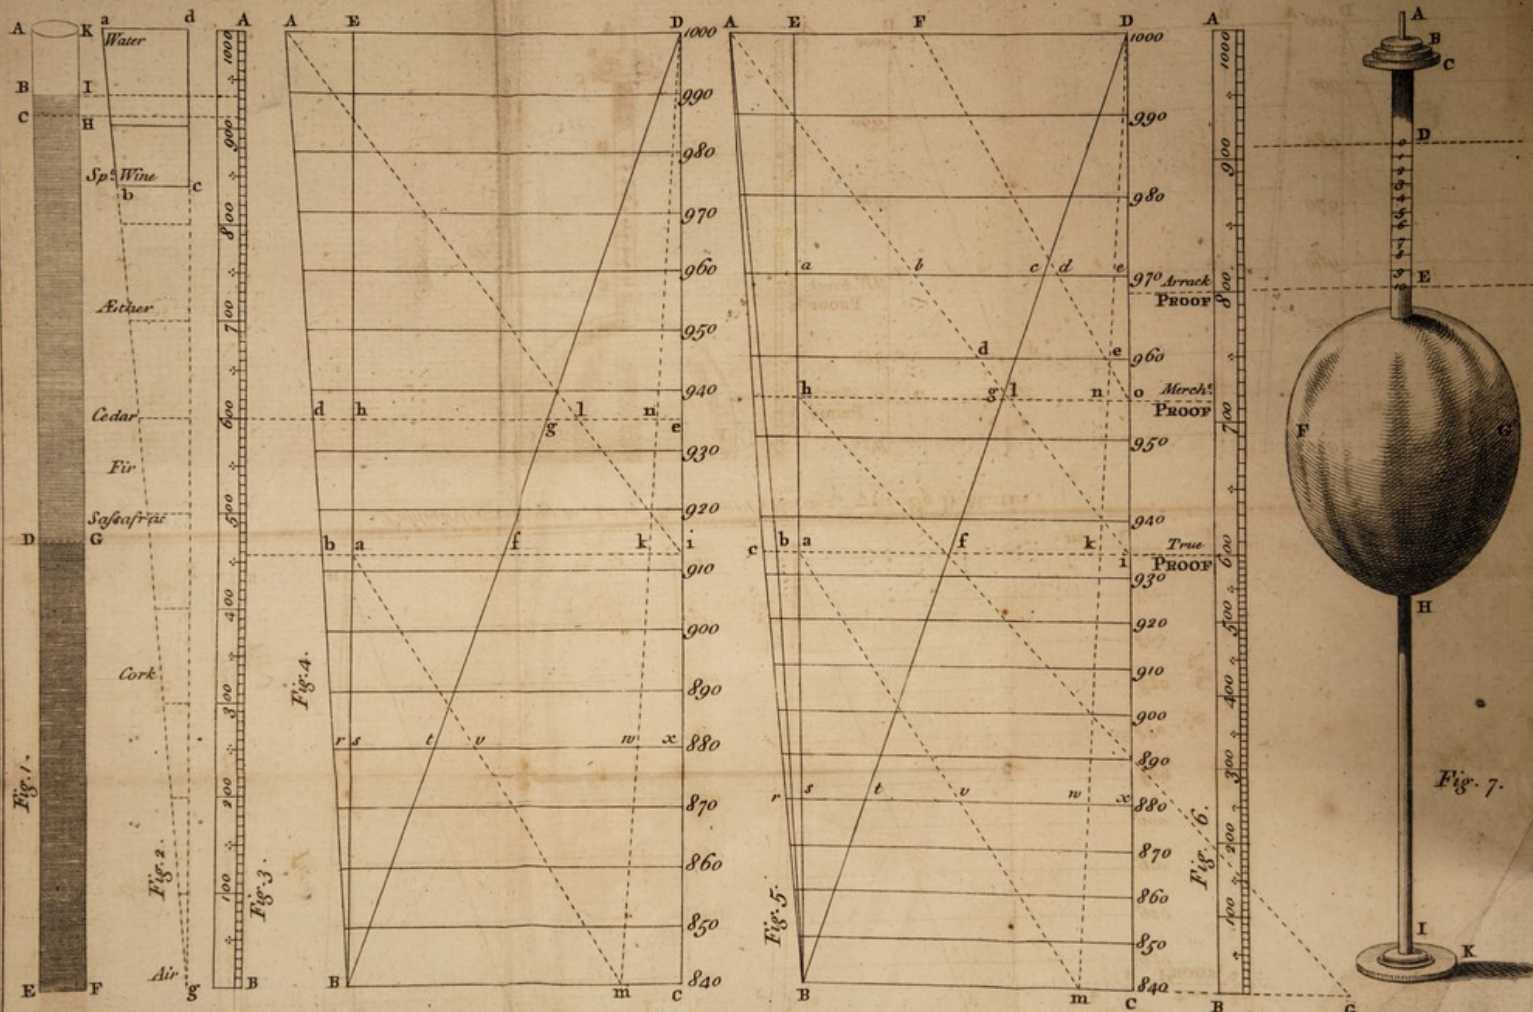 A K a d
Water
B I
C H
Sp.t Wine
b c
Æther
Cedar
Fir
Sassafras
D G
Cork
Air
E F g
Fig. 1.
Fig. 2.
A
1000
900
800
700
600
500
400
300
200
100
B
Fig. 3.
A E D
1000
990
980
970
960
950
940
d h g l n e
930
920
b a f k i
910
900
890
r s t v w x 880
870
860
850
840
B m C
Fig. 4.
A E F D
1000
990
980
a b c d e 970 Arrack
PROOF
d e 960
h g l n o Merch.t
PROOF
950
940
c b a f k i True
PROOF
930
920
910
900
890
r s t v w x 880
870
860
850
840
B m C
Fig. 5.
A
1000
900
800
700
600
500
400
300
200
100
B G
Fig. 6.
A
B
C
D
E
F G
H
I
K
Fig. 7.